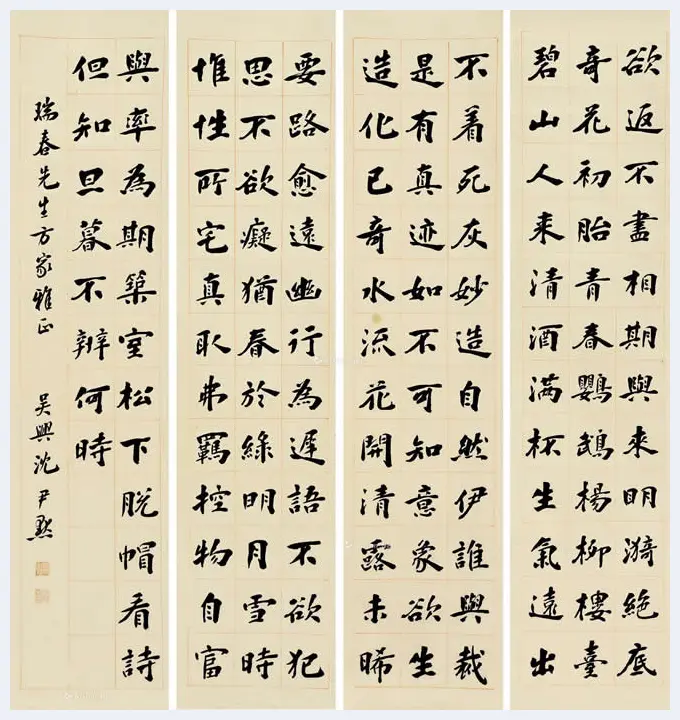 欲返不盡相期與來明漪絕底
奇花初胎青春鸚鵡楊柳樓臺
碧山人来清酒满杯生氣遠出
不着死灰妙造自然伊誰與裁
是有真迹如不可知意象欲生
造化已奇水流花開清露未晞
要路愈遠幽行為遲語不欲犯
思不欲癡猶春於綠明月雪時
惟性所宅真取弗羈控物自富
與率為期築室松下脫帽看詩
但知旦暮不辨何時
瑞春先生方家雅正 吳興沈尹默